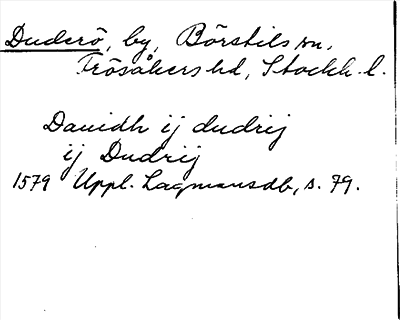 Duderö, by, Börstils sn,
Frösåkers hd, Stockh. l.
Dauidh ij dudrij
ij Dudrij
1579 Uppl. Lagmansdb, s. 79.